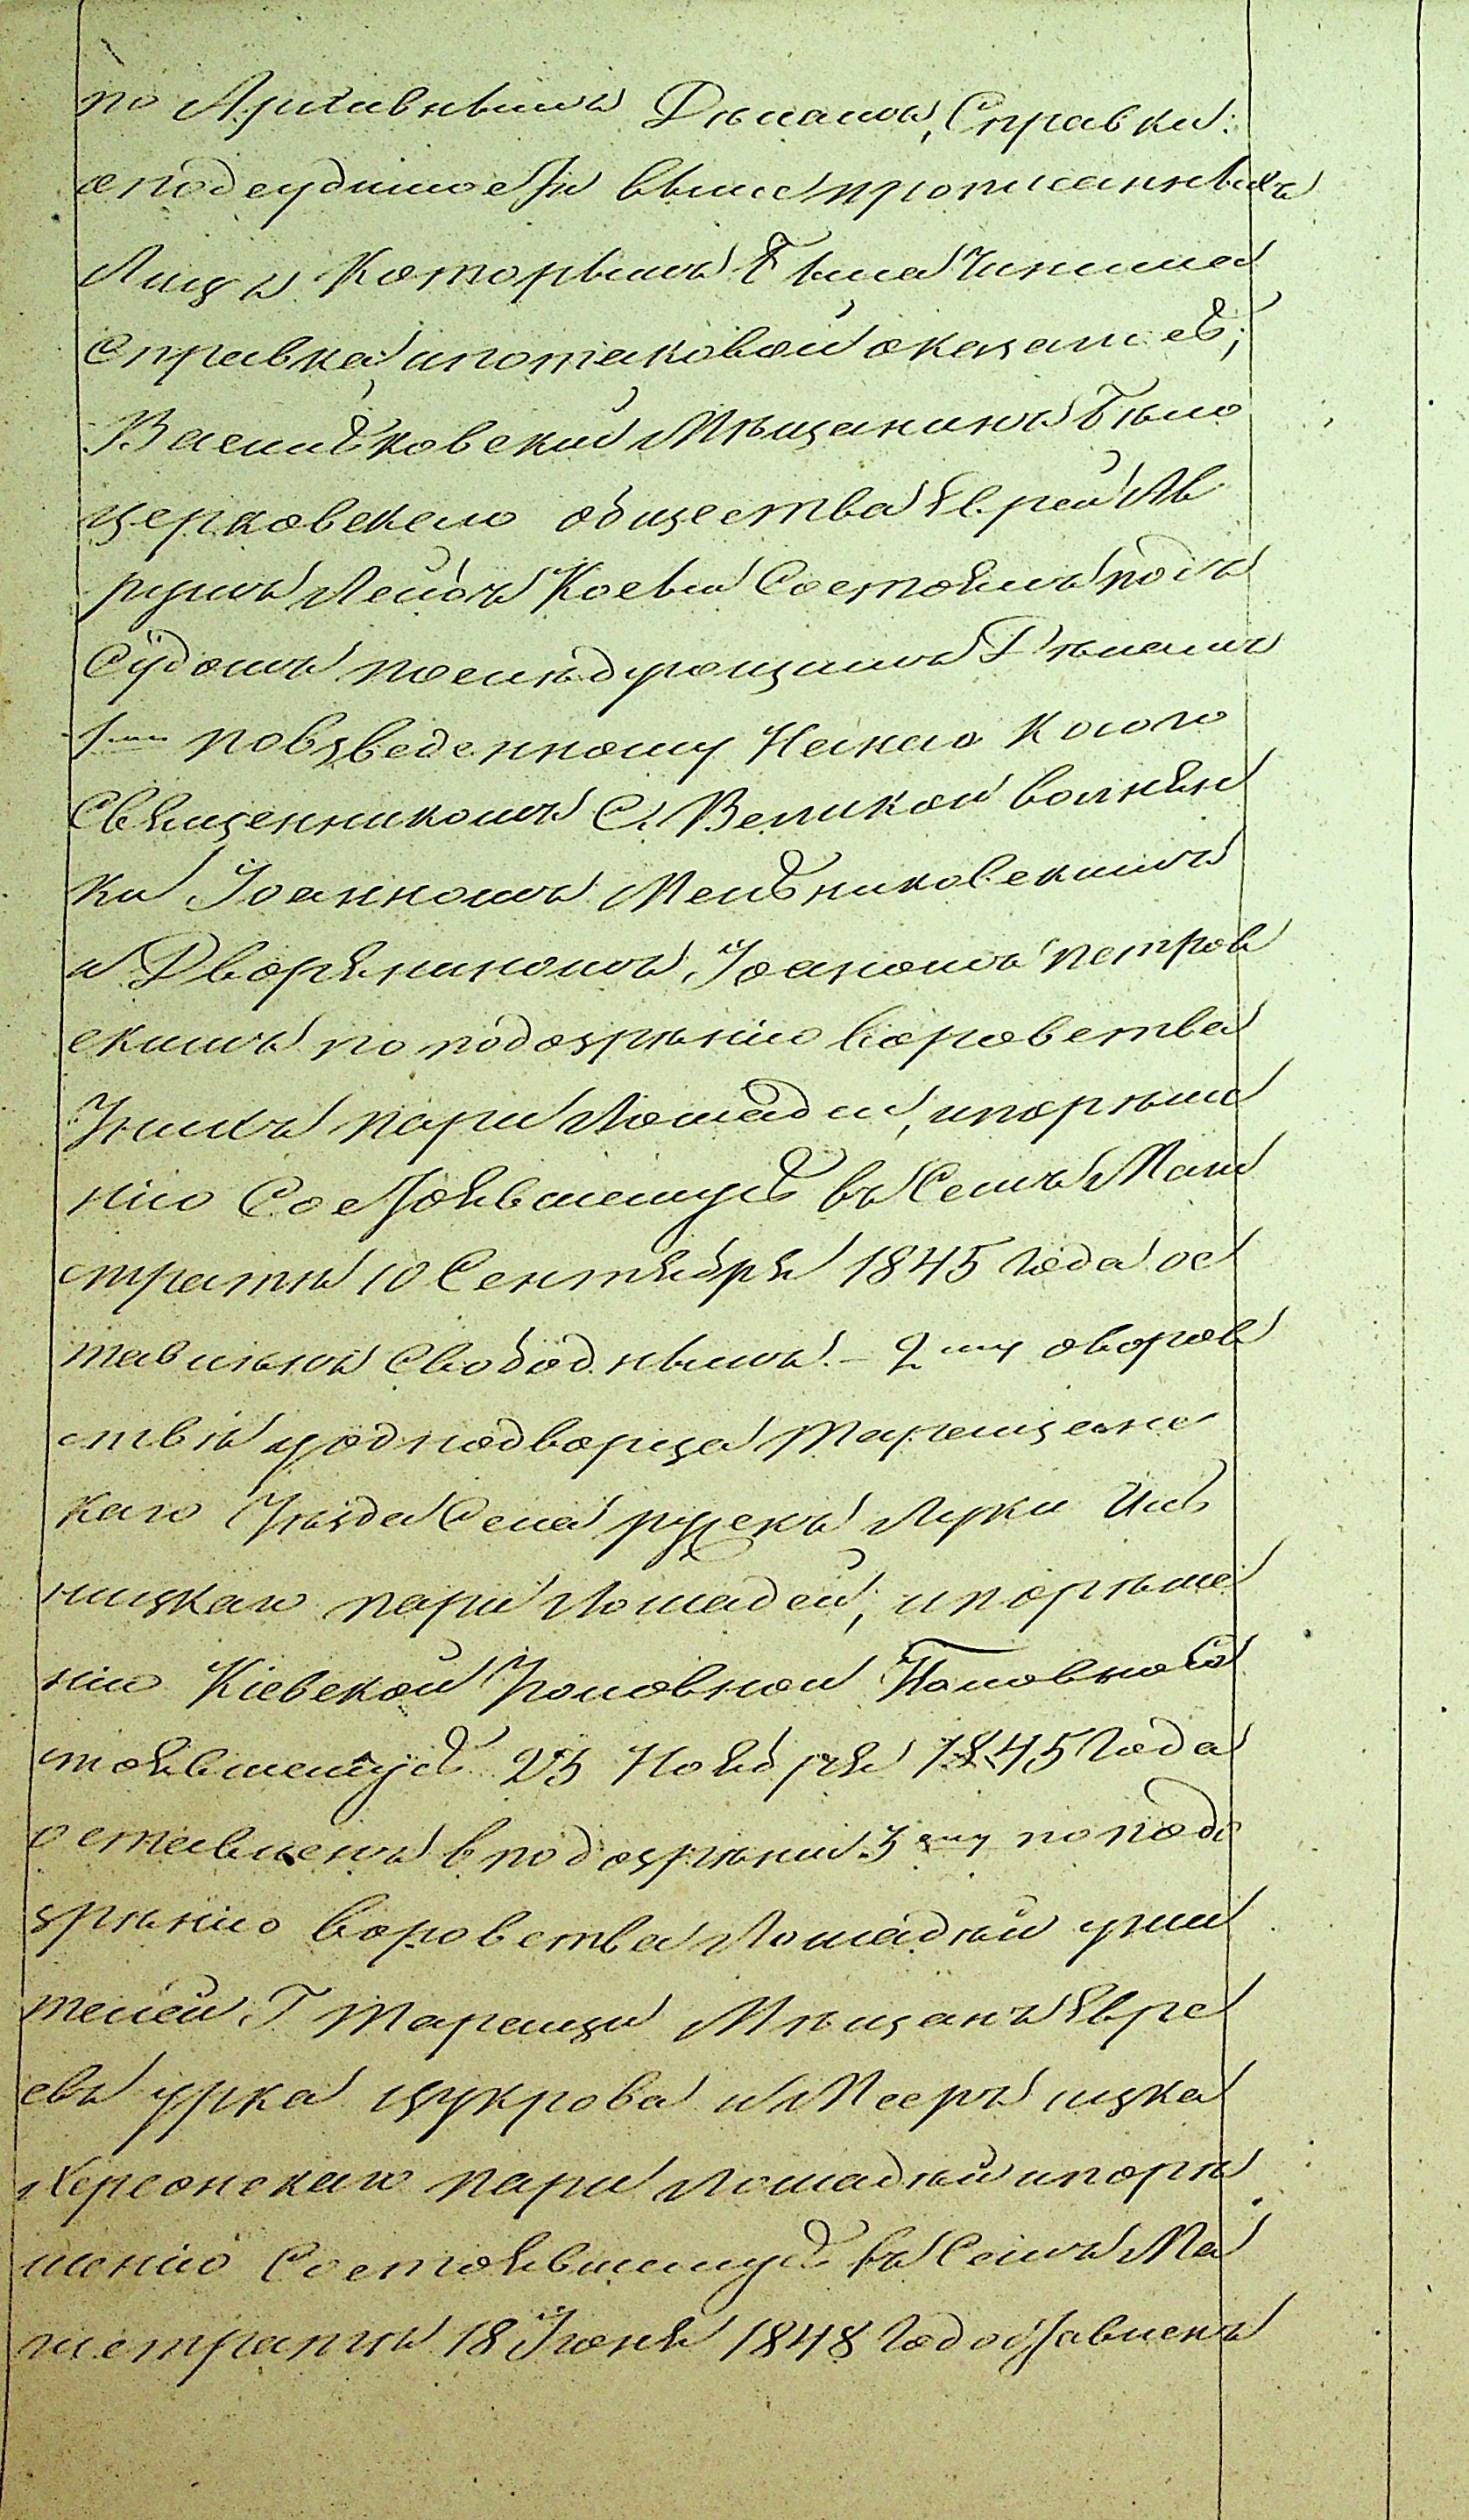 по Архивнымъ Дѣламъ, Справки:
оподсудимости вышепрописанныхъ
Лицъ Которымъ Была Чинима
Справка ипотаковой оказалось;
Васильковский Мѣщанинъ Бѣло
церковскаго общества Еврей Ав
румъ Лейбъ Состоялъ подъ
Судомъ послѣдующимъ Дѣламъ
1. повзведенному Нанего
Священникомъ С. Великой волнян
ки Іоанномъ Мельниковскимъ
и Дворяниномъ Іоаномъ петров
скимъ по подозрѣнію воровства
Унихъ пари Лошадей, ипорѣше
нію Состоявшемусь въ Семъ Маги
стратѣ 10 Сентября 1845 Года ос
тавленъ Свободнымъ. – 2му оворов
ствѣ уоднодворца Таращанс
каго Уѣзда Села Луки Иль
ницкаго пари Лошадей, ипорѣше
нію Кіевской Уголовной Палати Со
стоявшемусь 23 Ноября 1845 Года
оставленъ вподозрѣнии 3му поподо
зрѣнію воровства Лошадѣй ужи
телей Г Таращи Мѣщанъ Евре
евъ урка цукрова и Мееръ ицка
Херсонскаго пари Лошадѣй ипорѣ
шенію Состоявшемусь въ Семъ Ма
гистратѣ 18 Іюня 1848 Года оставленъ